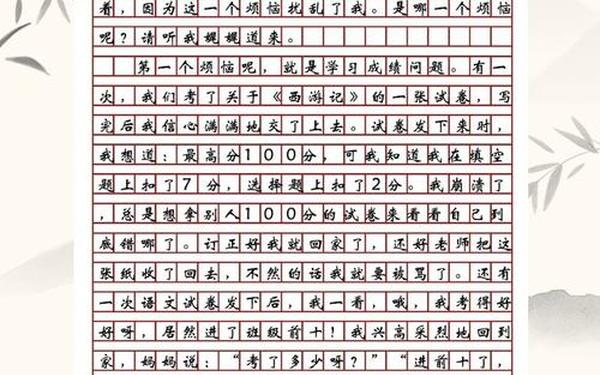 着，因为这一个烦恼扰乱了我。是哪一个烦恼
呢？请听我娓娓道来。
第一个烦恼呢，就是学习成绩问题。有一
次，我们考了关于《西游记》的一张试卷，写
完后我信心满满地交了上去。试卷发下来时，
我想道：最高分100分，可我知道我在填空
题上扣了7分，选择题上扣了2分。我崩溃了
，总是想拿别人100分的试卷来看看自己到
底错哪了。订正好我就回家了，还好老师把这
张纸收了回去，不然的话我就要被骂了。还有
一次语文试卷发下后，我一看，哦，我考得好
好呀，居然进了班级前十！我兴高采烈地回到
家，妈妈说：“考了多少呀？”“进前十了，